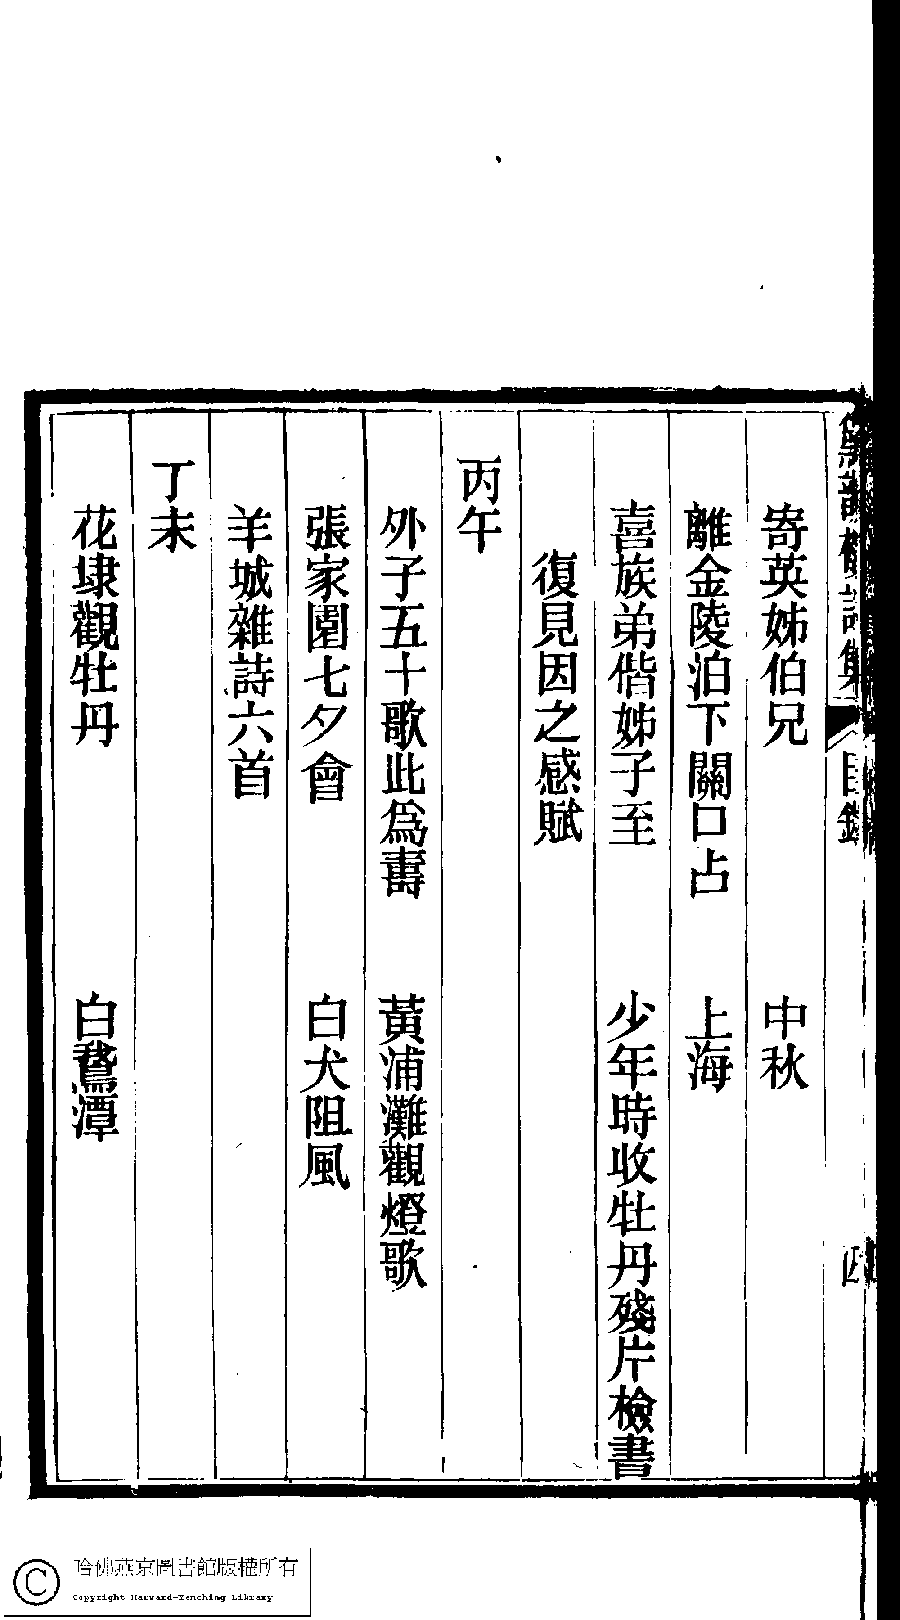 寄英姊伯兄　中秋
離金陵泊下關口占　上海
喜族弟偕姊子至　少年時收牡丹殘片檢書
復見因之感賦
丙午
外子五十歌此爲壽　黃浦灘觀燈歌
張家園七夕會　白犬阻風
羊城雜詩六首
丁未
花埭觀牡丹　白鵞潭
詩集
目錄
四
哈佛燕京圖書館版權所有
Copyright Harvard-Yenching Library